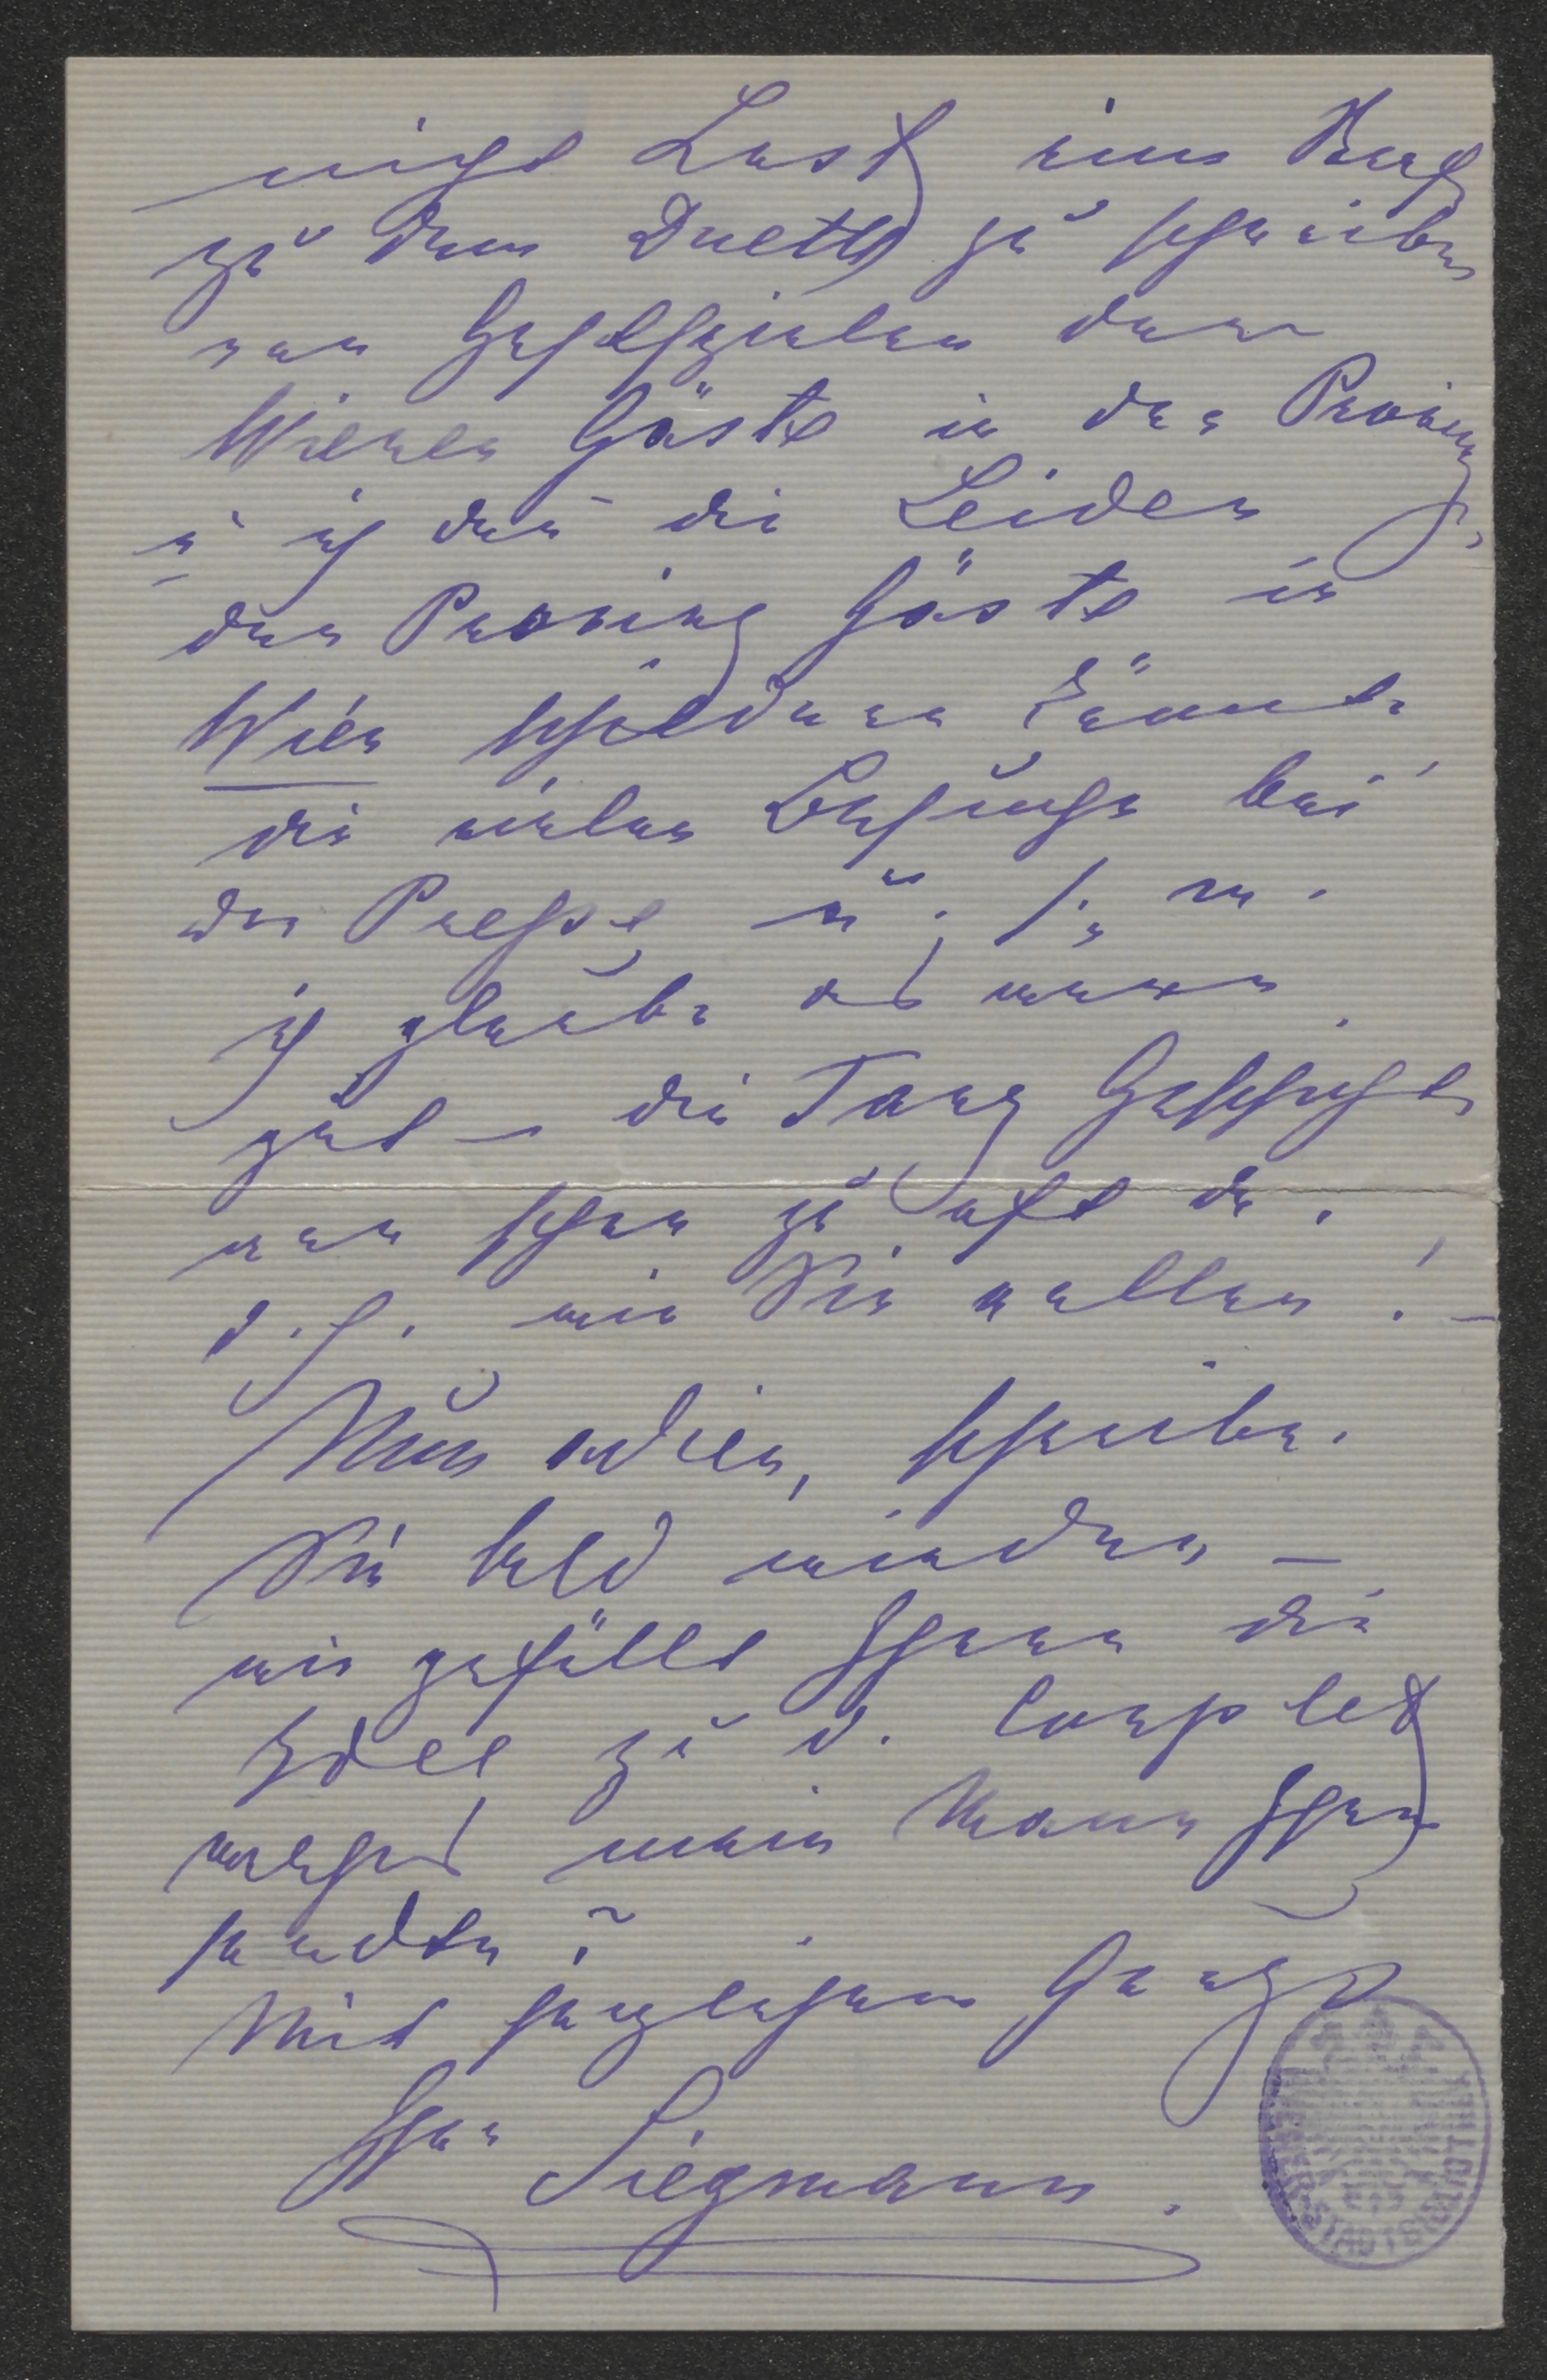 nicht Lust eine Buch
zu dem Duett zu schreiben
von Gastspielen der
Wiener Gäste in der Provinz,
u ich dan die Leiden
der Provinz Gäste in
Wien schildern könnte
die vielen Besuche bei
der Presse u. s. w.
ich glaube es wäre
gut – die Tanz Geschichte
war schon zu oft da.
d. h. wie Sie wollen! –
Nun adieu, schreiben
Sie bald wieder –
wie gefällt Ihnen die
Idee zu d. Couplet
welches mein Mann Ihnen
sandte?
Mit herzlichem Gruß
Ihre Siegmann.
STADTBIBLIOTHEK